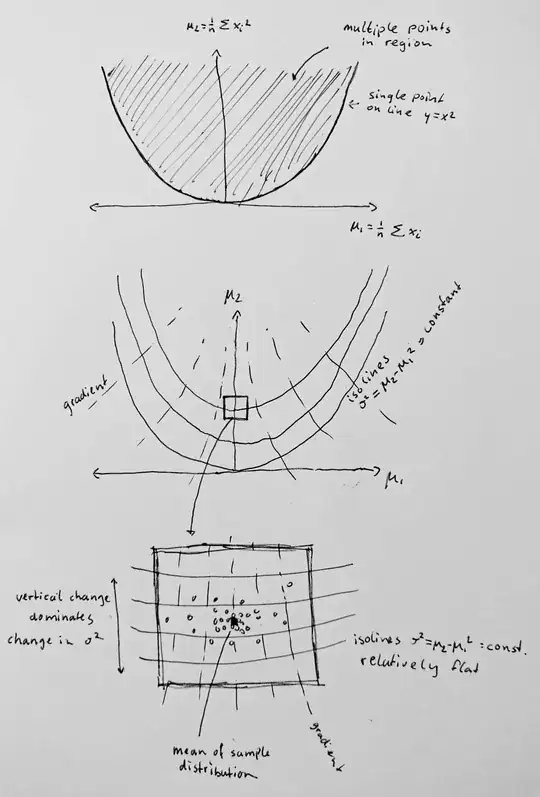 μ₂=1/n Σ xᵢ²
multiple points
in region
single point
on line y=x²
μ₁=1/n Σ xᵢ
μ₂
gradient
isolines
σ²=μ₂-μ₁²=constant
μ₁
vertical change
dominates
change in σ²
isolines σ²=μ₂-μ₁²=const.
relatively flat
gradient
mean of sample
distribution